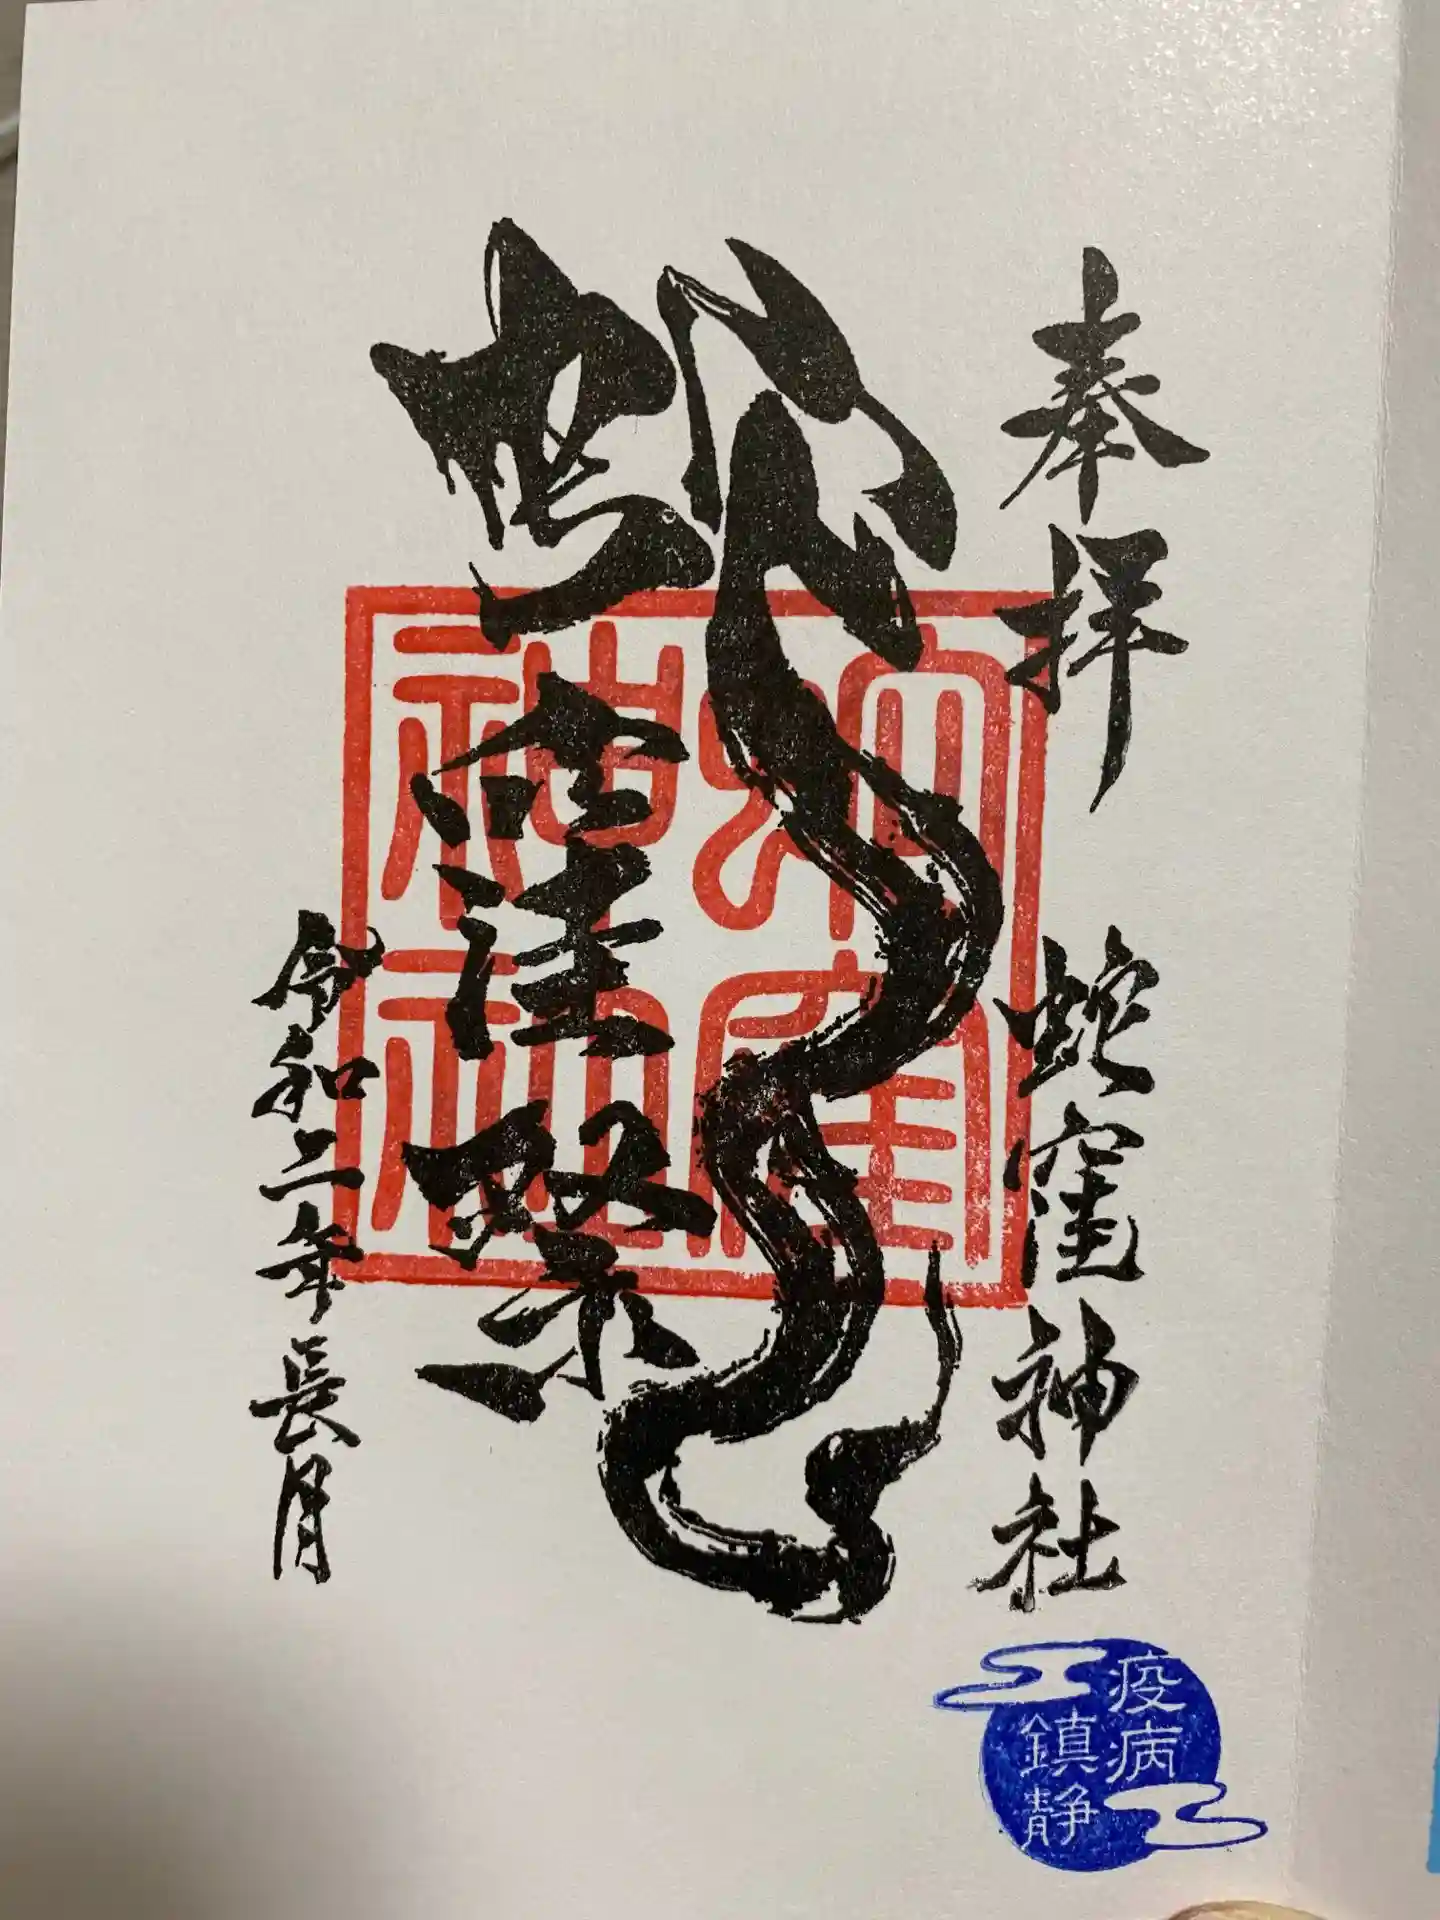 奉拝
蛇窪神社
疫病
鎮静
蛇窪祭
蛇窪
神社
令和二年長月